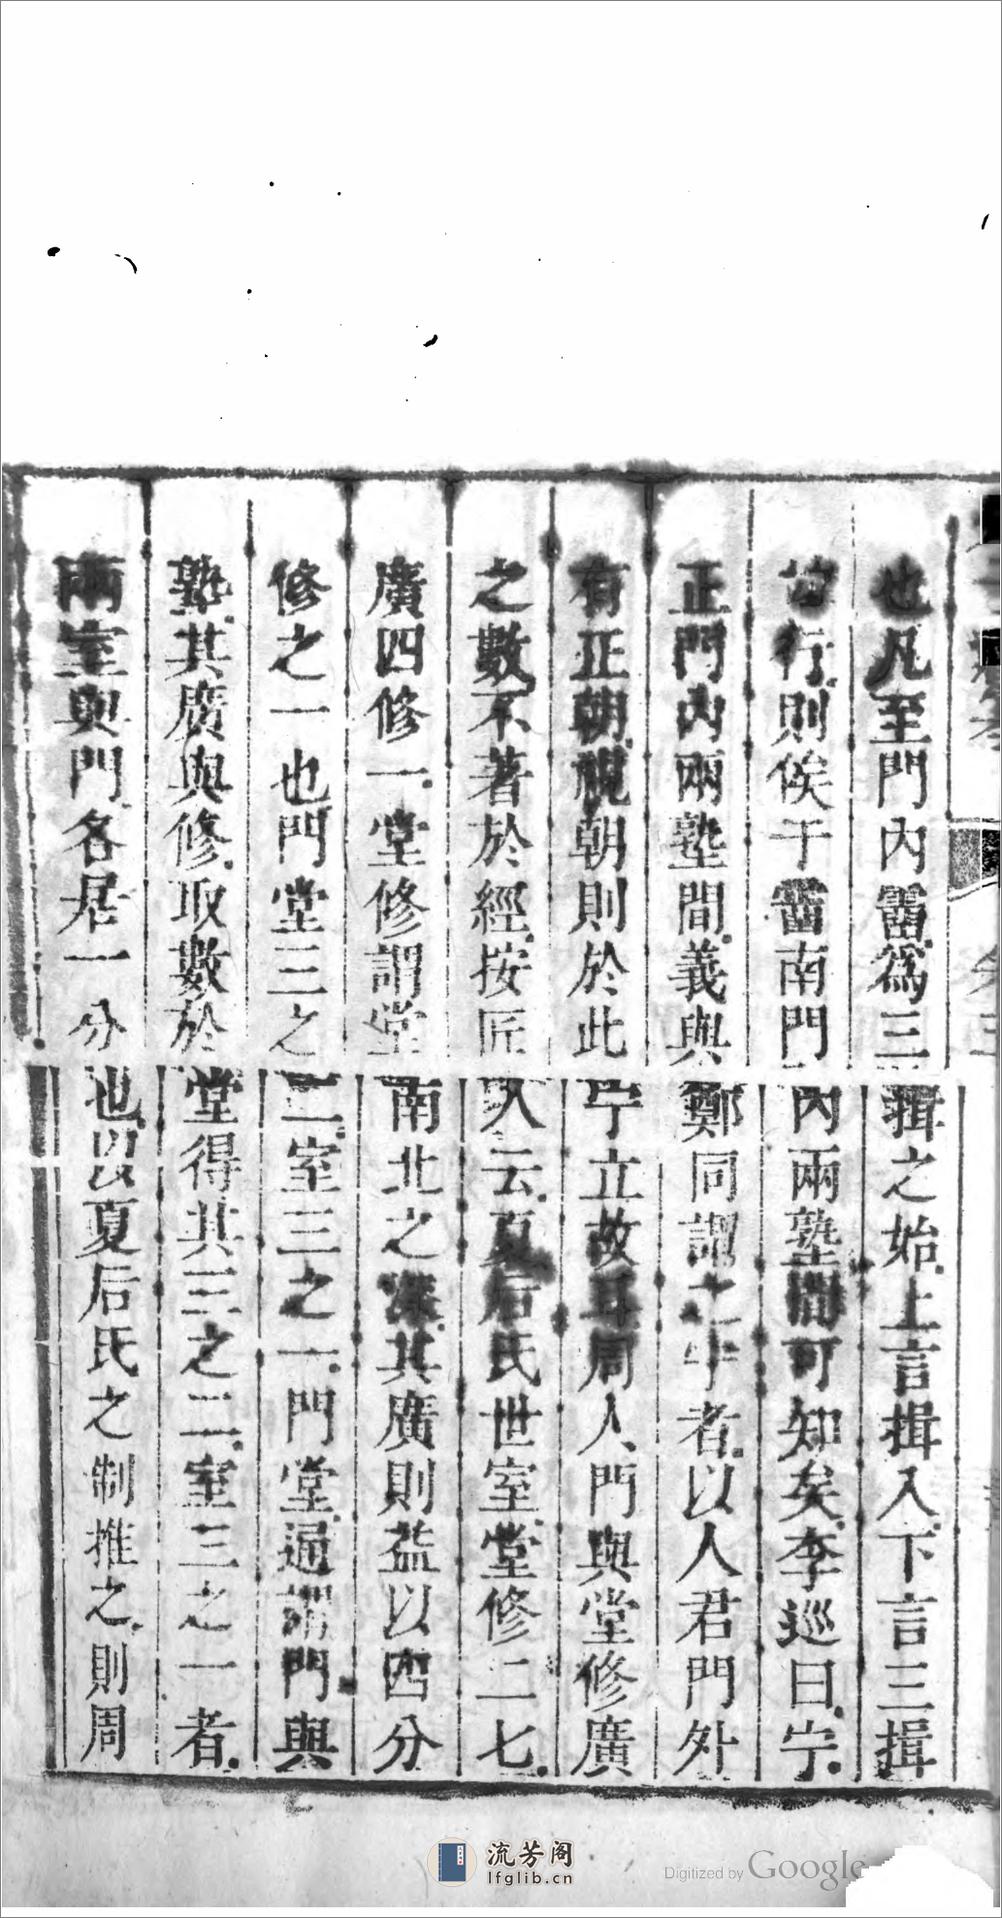 也凡至門內霤爲三揖之始上言揖入下言三揖
行則俟于霤南門內兩塾間可知矣李巡曰宁
正門內兩塾間義與鄭同謂之宁者以人君門外
有正朝視朝則於此宁立故耳周人門與堂修廣
之數不著於經按匠人云夏后氏世室堂修二七
廣四修一堂修謂堂南北之深其廣則益以四分
修之一也門堂三之二室三之一門堂通謂門與
塾其廣與修取數於堂得其三之二室三之一者
兩室與門各居一分也以夏后氏之制推之則周
流芳阁
lfglib.cn
Digitized by Google